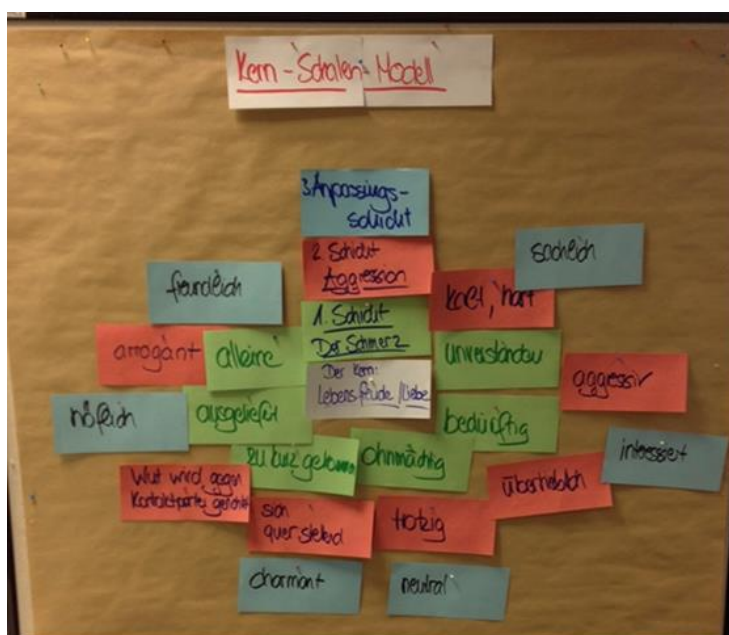 Kern-Schalen-Modell
3. Anpassungs-
schicht
2. Schicht
Aggression
sachlich
freundlich
kalt, hart
1. Schicht
Der Schmerz
arrogant
alleine
unverstanden
aggressiv
Der Kern:
Lebensfreude/Liebe
höflich
ausgeliefert
bedürftig
interessiert
zu kurz gekommen
ohnmächtig
Wut wird gegen
Kontaktpartner gerichtet
überheblich
sich
quer stellend
trotzig
charmant
neutral